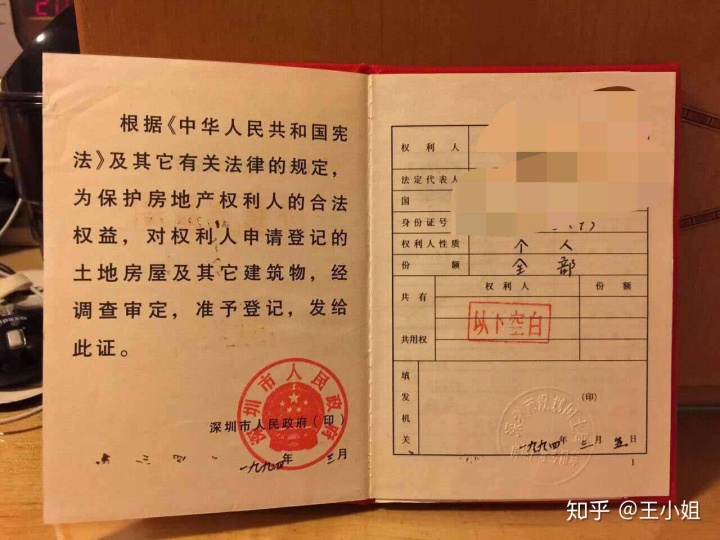 根据《中华人民共和国宪
法》及其它有关法律的规定，
为保护房地产权利人的合法
权益，对权利人申请登记的
土地房屋及其它建筑物，经
调查审定，准予登记，发给
此证。
深圳市人民政府
深圳市人民政府（印）
一九九四年三月
权利人
法定代表人
国
身份证号
权利人性质 个人
份额 全部
共有
共用权
权利人 份额
以下空白
填发机关
（印）
一九九四年三月五日
1
知乎 @王小姐